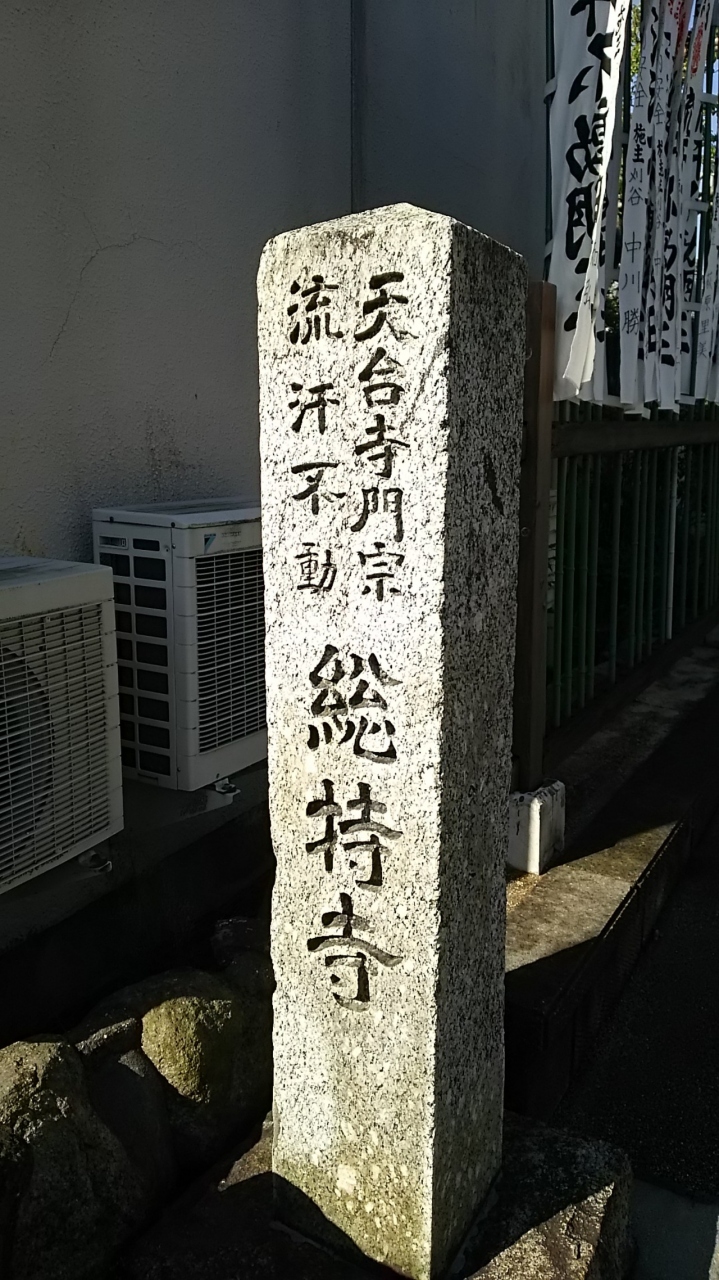 天台寺門宗
流汗不動
総持寺
施主 刈谷 中川 勝